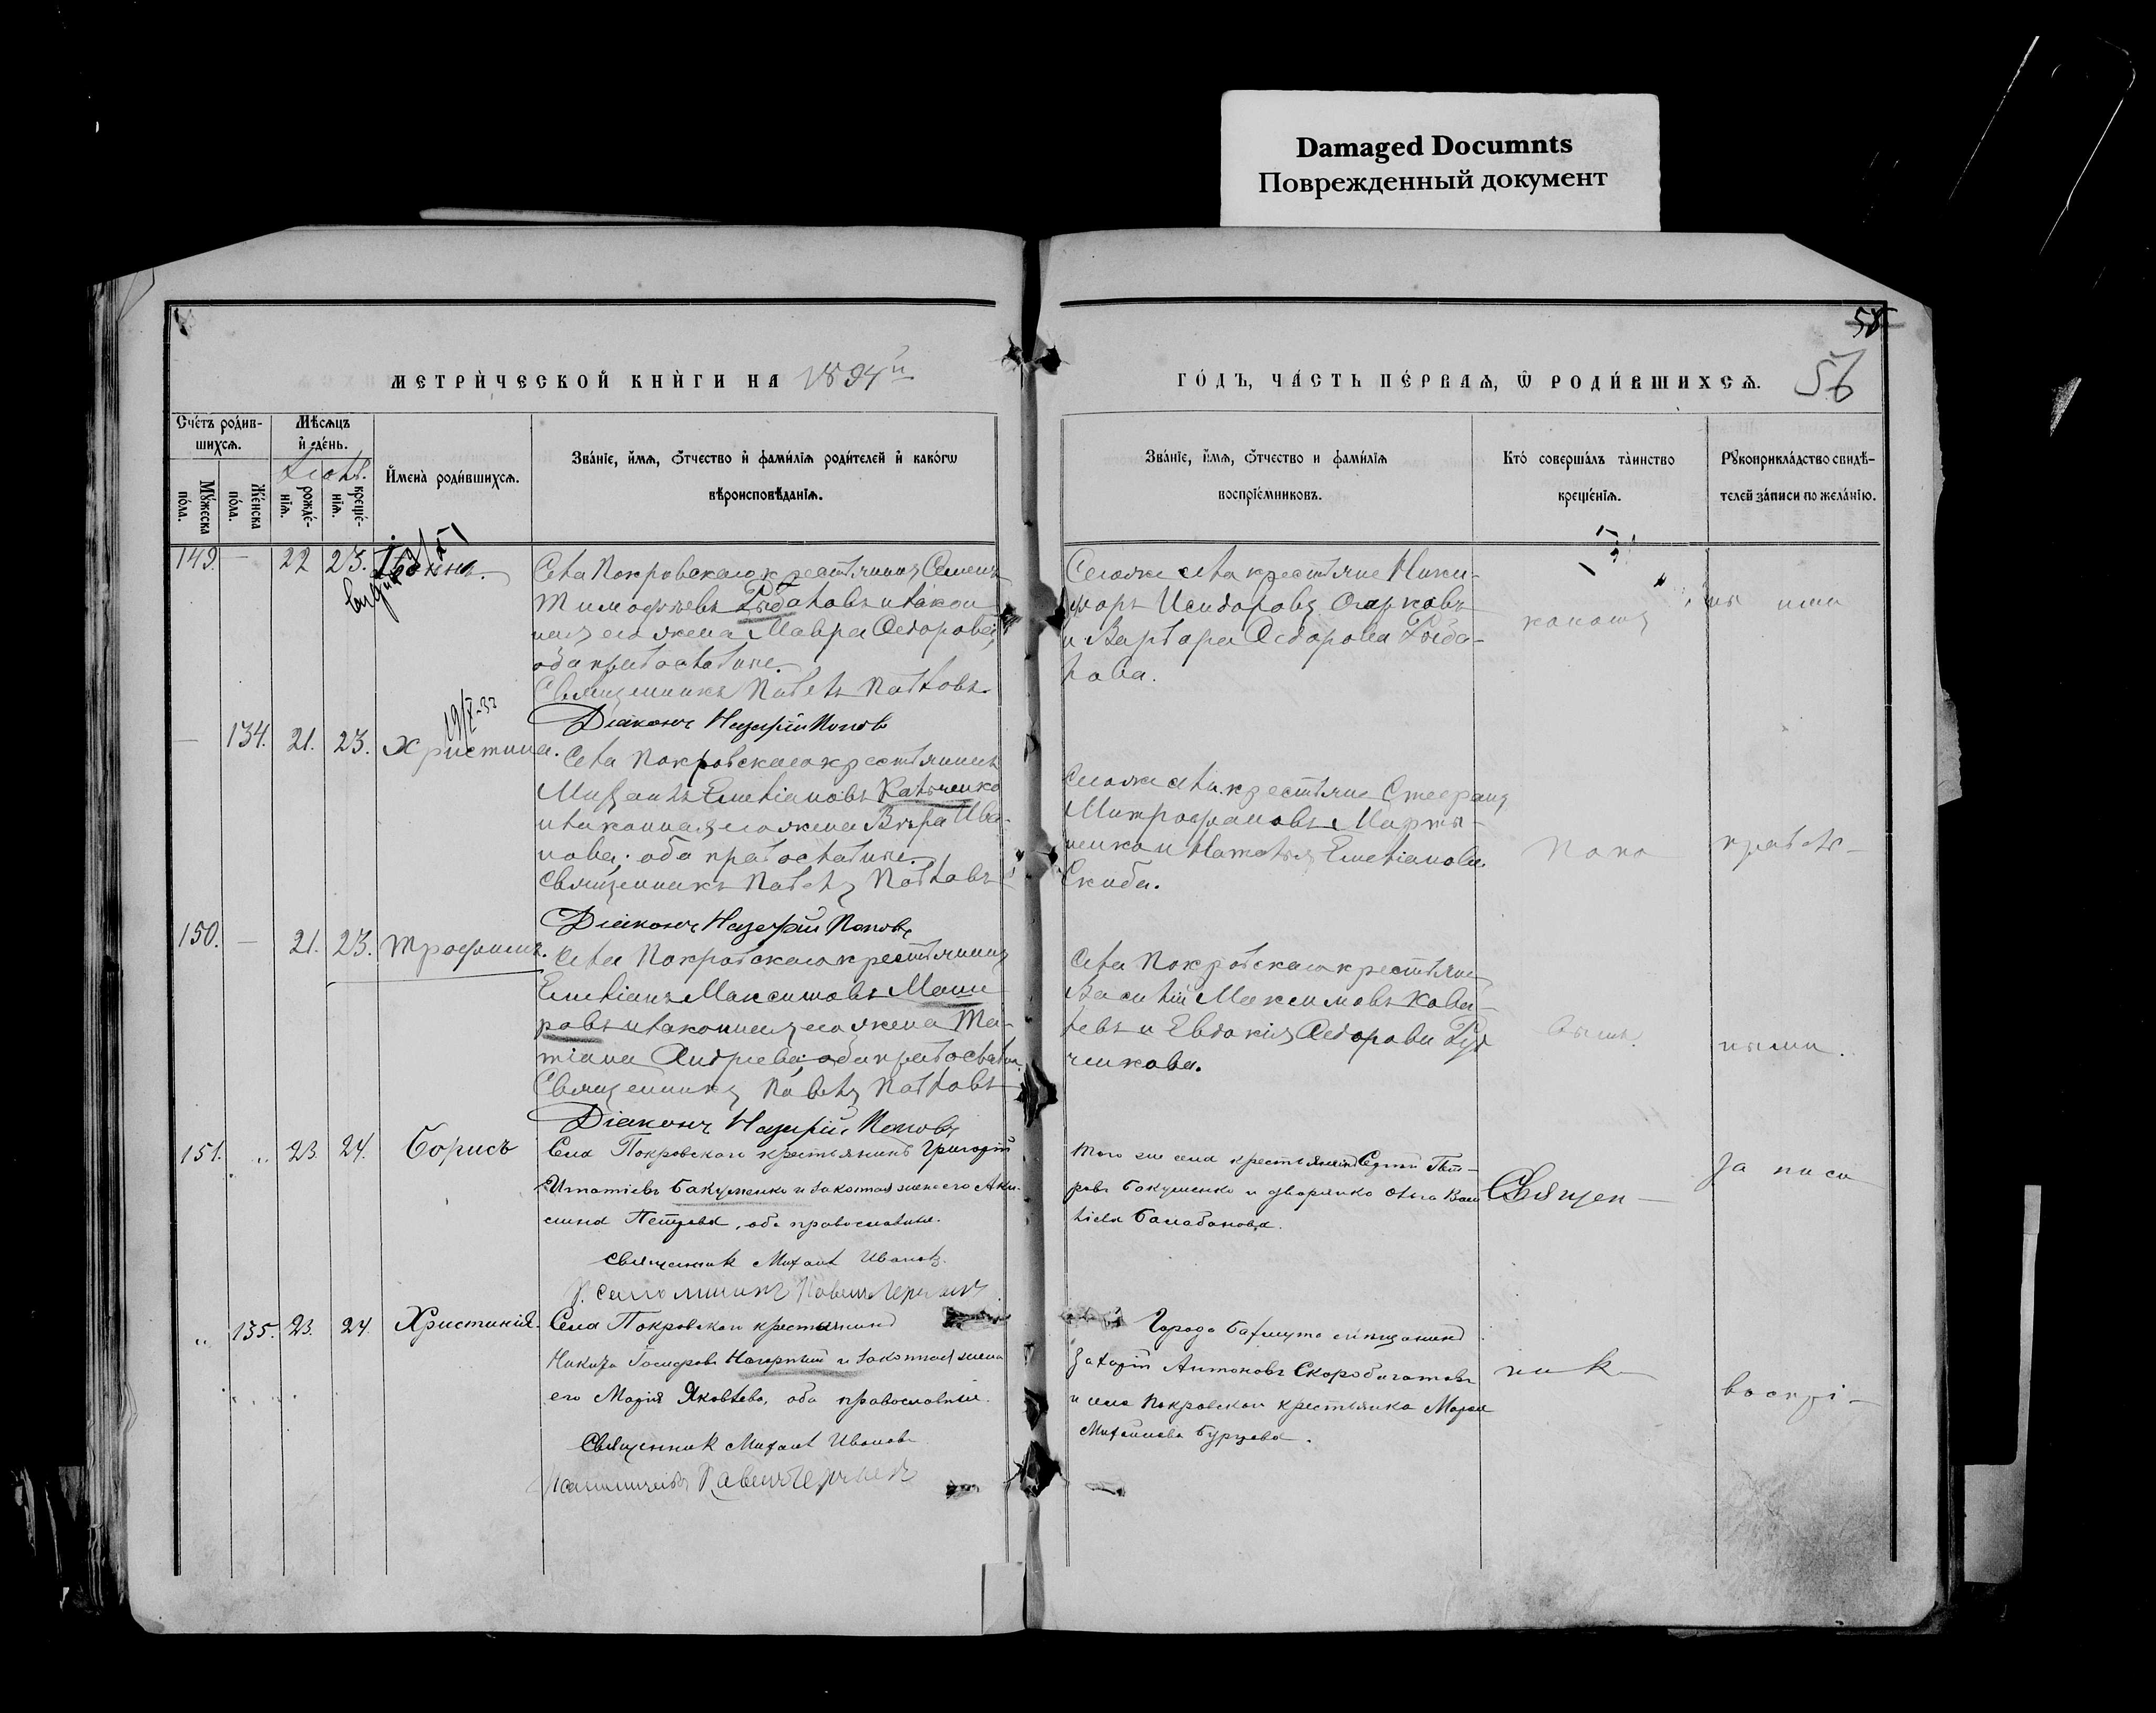 Damaged Documnts
Поврежденный документ
58
МЕТРИ́ЧЕСКОЙ КНИ́ГИ НА 1894й
ГО́ДЪ, ЧА́СТЬ ПЕ́РВАЯ, Ѡ РОДИ́ВШИХСЯ.
56
Сче́тъ роди́в-
шихсѧ.
Му́жеска
по́ла.
Же́нска
по́ла.
Мѣ́сѧцъ
и҆ де́нь.
рожде́-
нїѧ.
креще́-
нїѧ.
И҆мена̀ роди́вшихсѧ.
Зва́нїе, и҆́мѧ, о҆́тчество и҆ фами́лїѧ роди́телей и҆ како́гѡ
вѣроисповѣ́данїѧ.
Зва́нїе, и҆́мѧ, о҆́тчество и фами́лїѧ
воспрїе́мниковъ.
Кто̀ соверша́лъ та̀инство
креще́нїѧ.
Рꙋкоприкла́дство свидѣ́-
телей за́писи по жела́нїю.
149. — 22 23. Іоаннъ.
Села Покровскаго крестьянинъ Семенъ
Тимофѣевъ Рыбаловъ и закон
ная его жена Мавра Ѳедорова,
оба православные.
Священникъ Павелъ Павловъ.
Діаконъ Назарій Поповъ
Тогоже села крестьяне Ники-
форъ Исидоровъ Огарковъ
и Варвара Ѳедорова Рыба-
лова.
— 134. 21. 23. Христина.
19/X-32
Села Покровскаго крестьянинъ
Михаилъ Емеліановъ
и законная его жена Вѣра Ива-
нова; оба православные.
Священникъ Павелъ Павловъ
Діаконъ Назарій Поповъ
Тогоже села крестьяне Стефанъ
Митрофановъ Марты-
ненко и Наталья Емеліанова
Скиба.
150. — 21. 23. Трофимъ.
Села Покровскаго крестьянинъ
Емеліанъ Максимовъ
и законная его жена Та-
тіана Андреева; оба православн.
Священникъ Павелъ Павловъ
Діаконъ Назарій Поповъ
Села Покровскаго крестьяне
Василій Максимовъ Кова-
левъ и Евдокія Ѳедорова Руд
ченкова.
151. „ 23. 24. Борисъ
Села Покровскаго крестьянинъ Григорій
Игнатіевъ Бакуменко и законная жена его Аку-
лина Петрова, оба православные.
Священникъ Михаилъ Ивановъ.
Того же села крестьянинъ Сергій Пет-
ровъ Бакуменко и дворянка Ольга Васи
ліева Балабанова.
Священ-
Записи
„ 135. 23. 24. Христинія.
Села Покровскаго крестьянинъ
Никита Нагорный и законная жена
его Марія Яковлева, оба православные.
Священникъ Михаилъ Ивановъ
Города Бахмута мѣщанинъ
Захарій Антоновъ Скоробогатовъ
и села Покровскаго крестьянка Марія
Михаилова Бурцева.
никъ
воспрі-